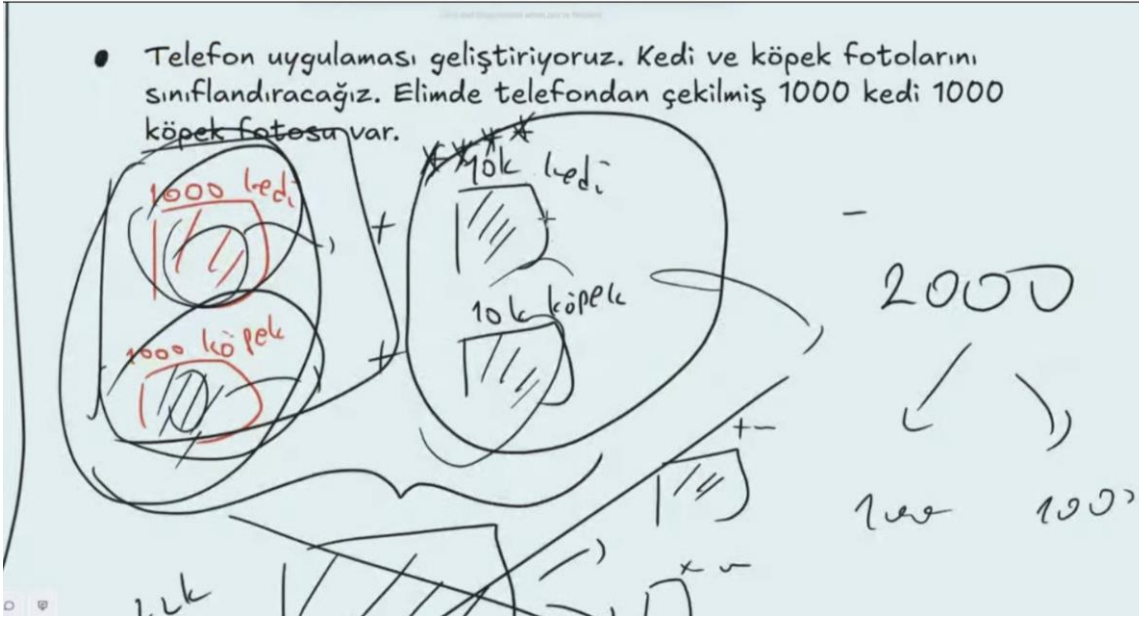 • Telefon uygulaması geliştiriyoruz. Kedi ve köpek fotolarını
sınıflandıracağız. Elimde telefondan çekilmiş 1000 kedi 1000
köpek fotosu var.
1000 kedi
+
10k kedi
+
-
2000
1000 köpek
+
10k köpek
+-
1000